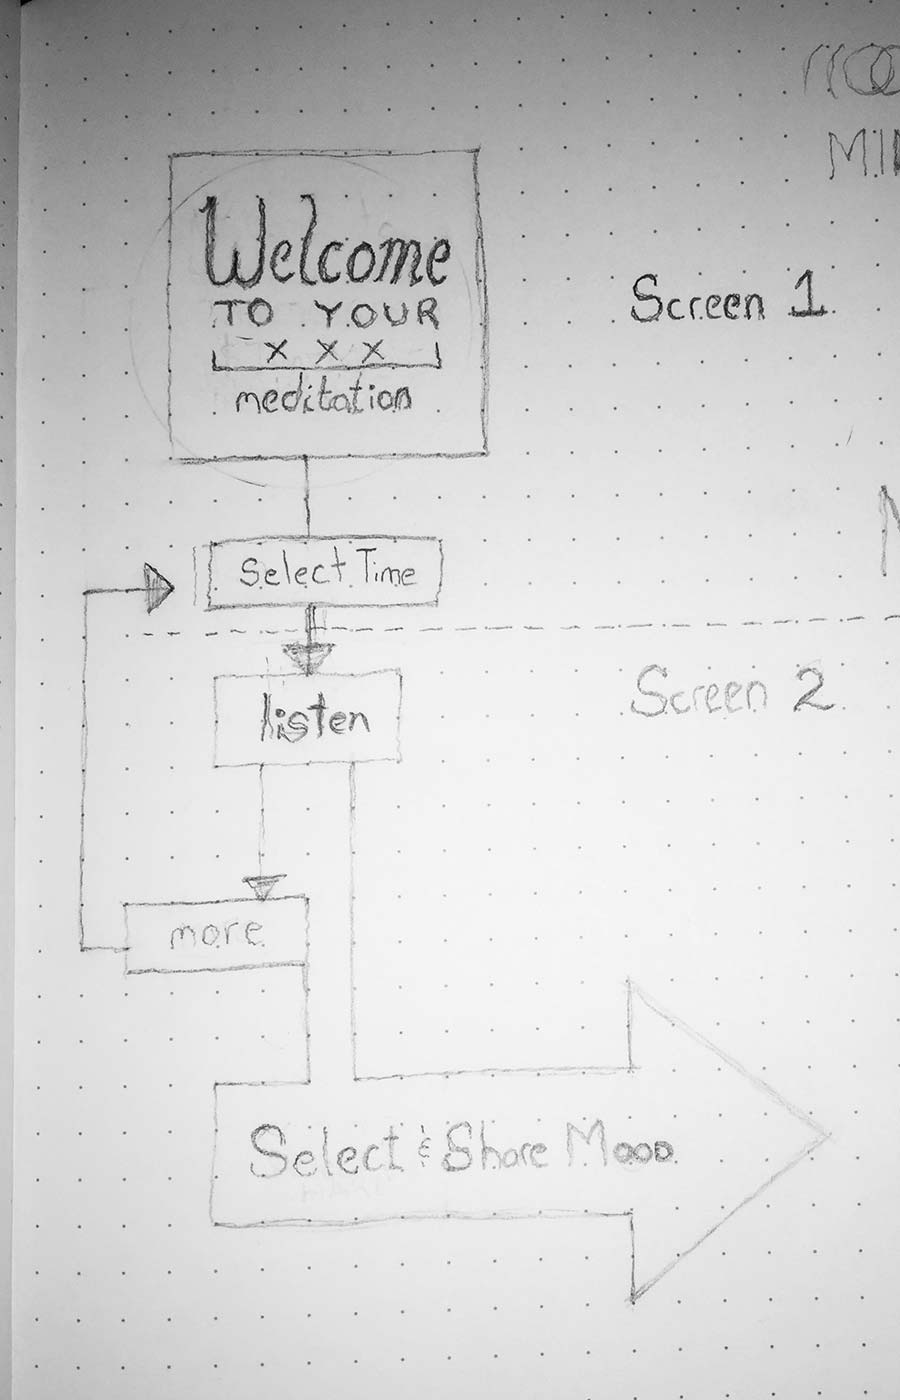 Welcome
TO YOUR
X X X
meditation
Screen 1
Select Time
Screen 2
listen
more
Select & Share Mood